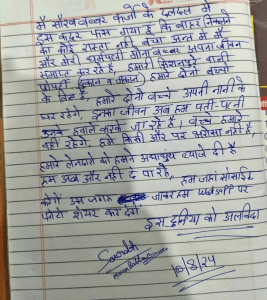 मैं सौरभ बब्बर कर्जों के दलदल में
इस कदर फस गया हूँ कि बाहर निकलने
का कोई रास्ता नहीं बच्चा अन्त में मैं
और मेरी धर्मपत्नी मोना बब्बर अपना जीवन
समाप्त कर रहे हैं हमारी किशनपुरा वाली
प्रोपर्टी (दुकान व मकान) हमारे दोनों बच्चों
के लिए है, हमारे दोनों बच्चे अपनी नानी के
घर रहेंगे, इनका जीवन अब हम पति-पत्नी
उनके हवाले करके जा रहे हैं। बच्चे हमारे
वहीं रहेंगे, हमें किसी और पर भरोसा नहीं है,
हमारे लेनदारों को हमने अंधाधुंध ब्याज दी हैं
हम अब और नहीं दे पा रहे, हम जहां सोसाईड
करेंगे उस जगह जाकर हम Watsapp पर
फोटो शेयर कर देंगे
इस दुनिया को अलविदा
Saurabh
10/8/24